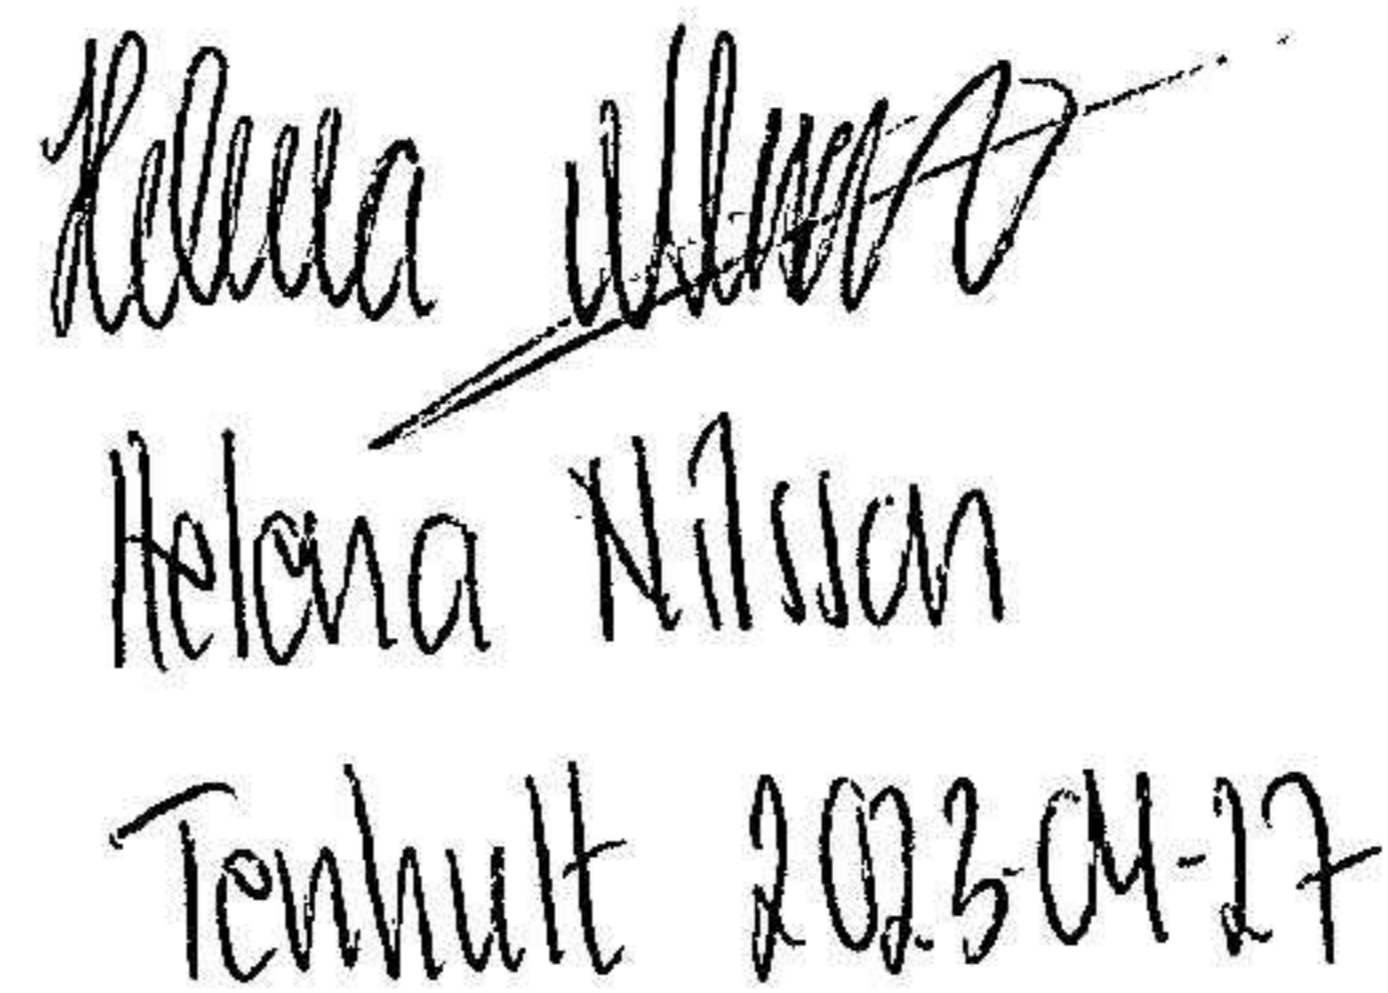 Helena Nilsson
Helena Nilsson
Tenhult 2023-04-27